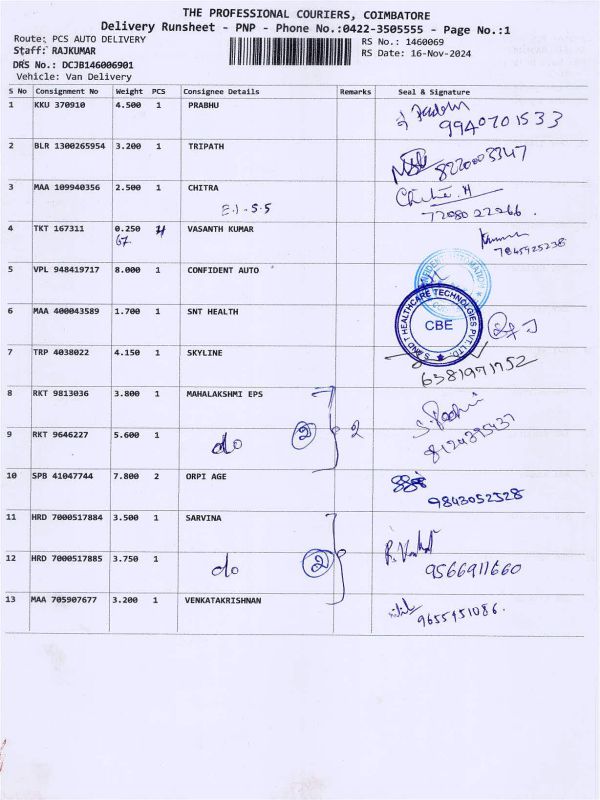 THE PROFESSIONAL COURIERS, COIMBATORE
Delivery Runsheet - PNP - Phone No.:0422-3505555 - Page No.:1
Route: PCS AUTO DELIVERY RS No.: 1460069
Staff: RAJKUMAR RS Date: 16-Nov-2024
DRS No.: DCJB146006901
Vehicle: Van Delivery
S No Consignment No Weight PCS Consignee Details Remarks Seal & Signature
1 KKU 370910 4.500 1 PRABHU
9940701533
2 BLR 1300265954 3.200 1 TRIPATH 8220003347
3 MAA 109940356 2.500 1 CHITRA
E.I-S.5 7208022266.
4 TKT 167311 0.250 VASANTH KUMAR
67 7845925238
5 VPL 948419717 8.000 1 CONFIDENT AUTO
6 MAA 400043589 1.700 1 SNT HEALTH
S AND T HEALTHCARE TECHNOLOGIES PVT. LTD.
CBE
7 TRP 4038022 4.150 1 SKYLINE
6381971752
8 RKT 9813036 3.800 1 MAHALAKSHMI EPS
9 RKT 9646227 5.600 1 do 2 2 8124395437
10 SPB 41047744 7.800 2 ORPI AGE
9843052528
11 HRD 7000517884 3.500 1 SARVINA
12 HRD 7000517885 3.750 1 do 2 9566911660
13 MAA 705907677 3.200 1 VENKATAKRISHNAN
9655451086.